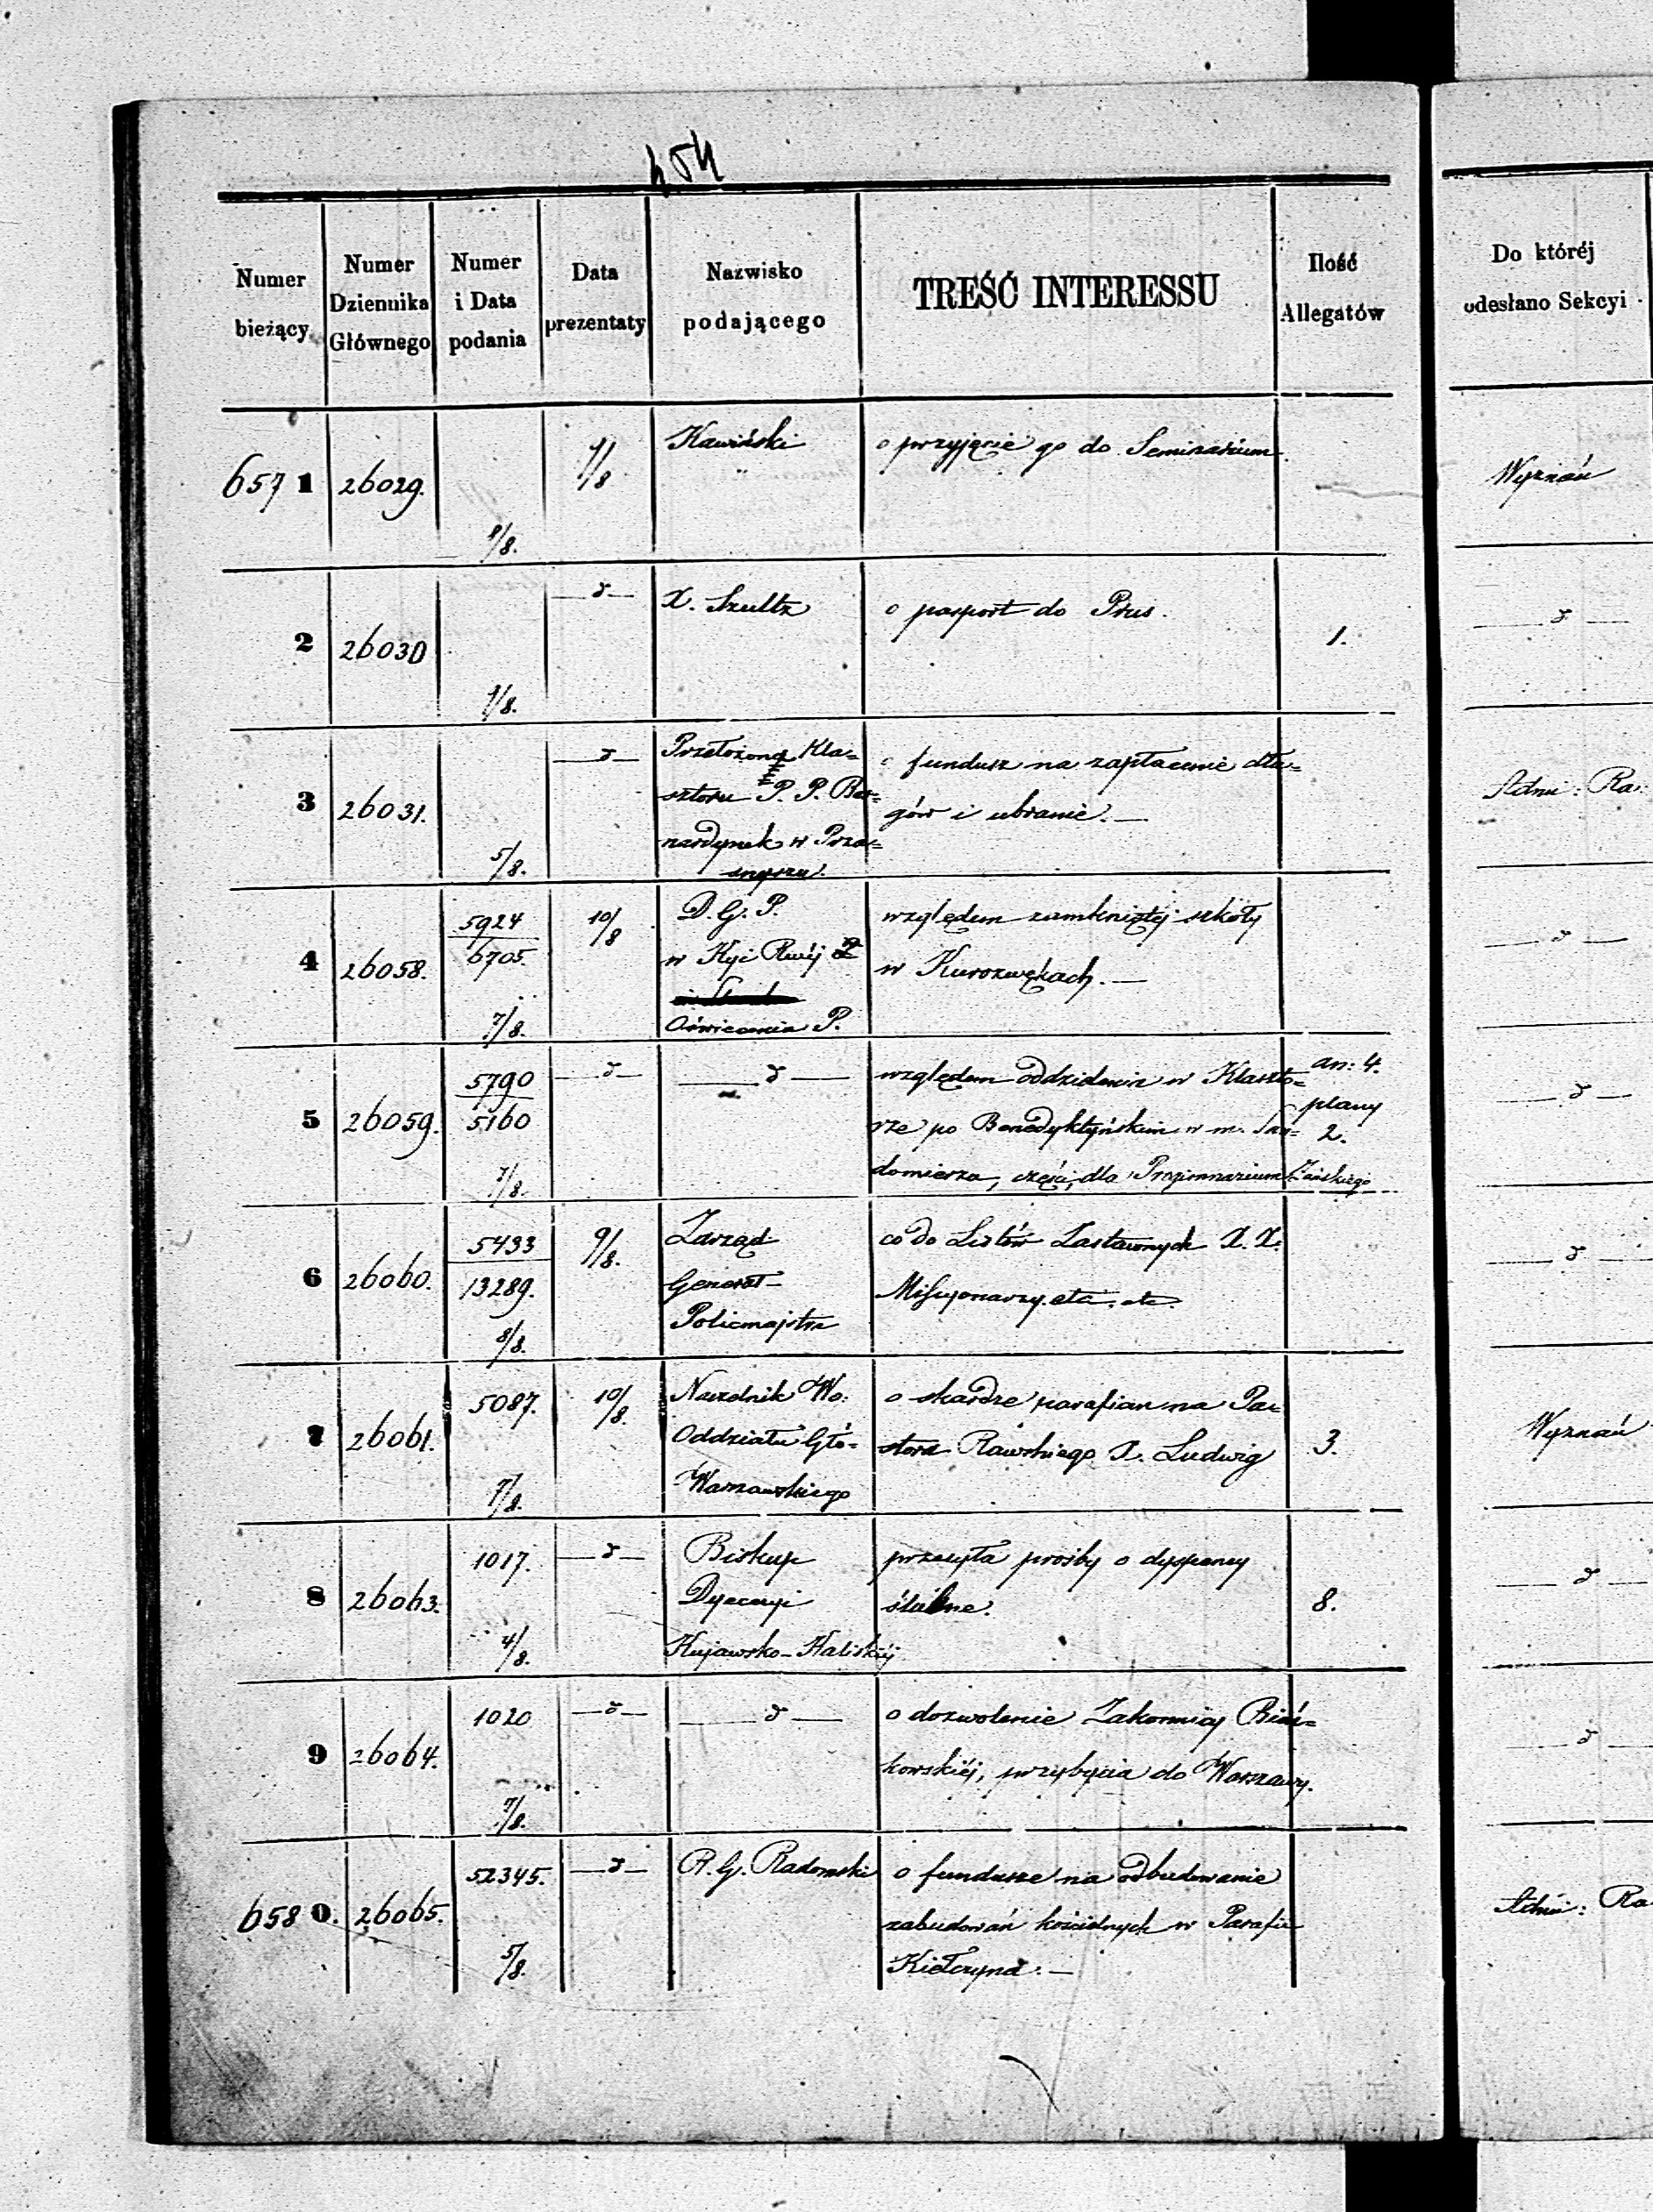 454
Numer bieżący
Numer Dziennika Głównego
Numer i Data podania
Data prezentaty
Nazwisko podającego
TREŚĆ INTERESSU
Ilość Allegatów
Do któréj odesłano Sekcyi
6571 26029. 9/8
Kawiński
o przyjęcie go do Seminarium.
Wyznań
8/8.
2 26030 d
X. Szultz
o pasport do Prus.
1.
d
1/8.
3 26031. d
Przełożona Kla=
sztoru P. P. Ber=
nardynek w Prza=
snyszu.
o fundusz na zapłacenie dłu=
gów i ubranie.—
Admi: Ra:
5/8.
4 26058. 5924
6705.
7/8. 10/8
D. G. P.
w Kyi Rwéj
Oświecenia P.
względem zamkniętéj szkoły
w Kurozwękach.—
d
5 26059. 5790
5160
7/8. d
d
względem oddzielenia w Klaszto=
rze po Benedyktyńskim w m. San=
domierzu, części dla Progimnazium Żeńskiego
an: 4.
plany
2.
d
6 26060. 5433
13289.
8/8. 9/8.
Zarząd
Generał-
Policmajstra
co do Listów Zastawnych X. X.
Missyonarzy. etc. etc.
d
7 26061. 5087.
7/8. 10/8.
Naczelnik Wo:
Oddziału Głó=
Warszawskiego
o skardze parafian na Pa=
stora Rawskiego X. Ludwig
3.
Wyznań
8 26063. 1017.
4/8. d
Biskup
Dyecezyi
Kujawsko-Kaliskiéj
przesyła prośby o dyspensy
ślubne.
8.
d
9 26064. 1020
7/8. d
d
o dozwolenie Zakonnicy Bień=
kowskiéj, przybycia do Warszawy.
d
6580. 26065. 52345.
5/8. d
R. G. Radomski
o fundusze na odbudowanie
zabudowań kościelnych w Parafii
Kiełczyna.—
Admi: Ra